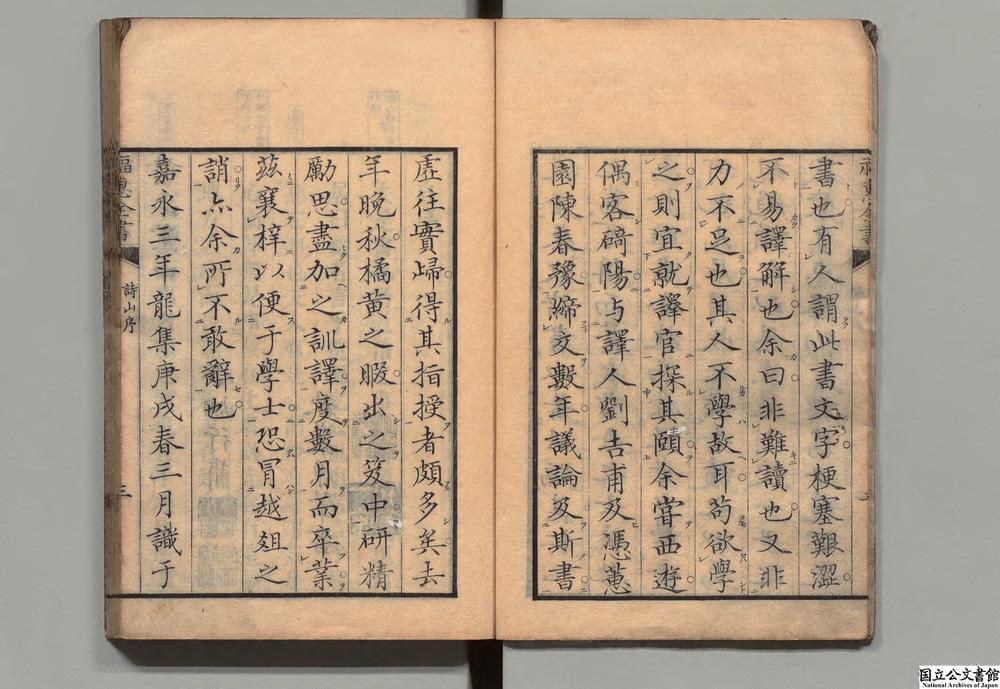 書也有人謂此書文字梗塞艱澀
不易譯解也余曰非難讀也又非
力不足也其人不學故耳苟欲學
之則宜就譯官探其頤余嘗西遊
偶客碕陽与譯人劉吉甫及憑蕙
園陳春豫締交數年議論及斯書
虛往實歸得其指授者頗多矣去
年晚秋橘黃之暇出之笈中研精
勵思盡加之訓譯度數月而卒業
茲襄梓以便于學士恐冒越俎之
誚亦余所不敢辭也
嘉永三年龍集庚戌春三月識于
福惠全書
詩山序
三
国立公文書館
National Archives of Japan